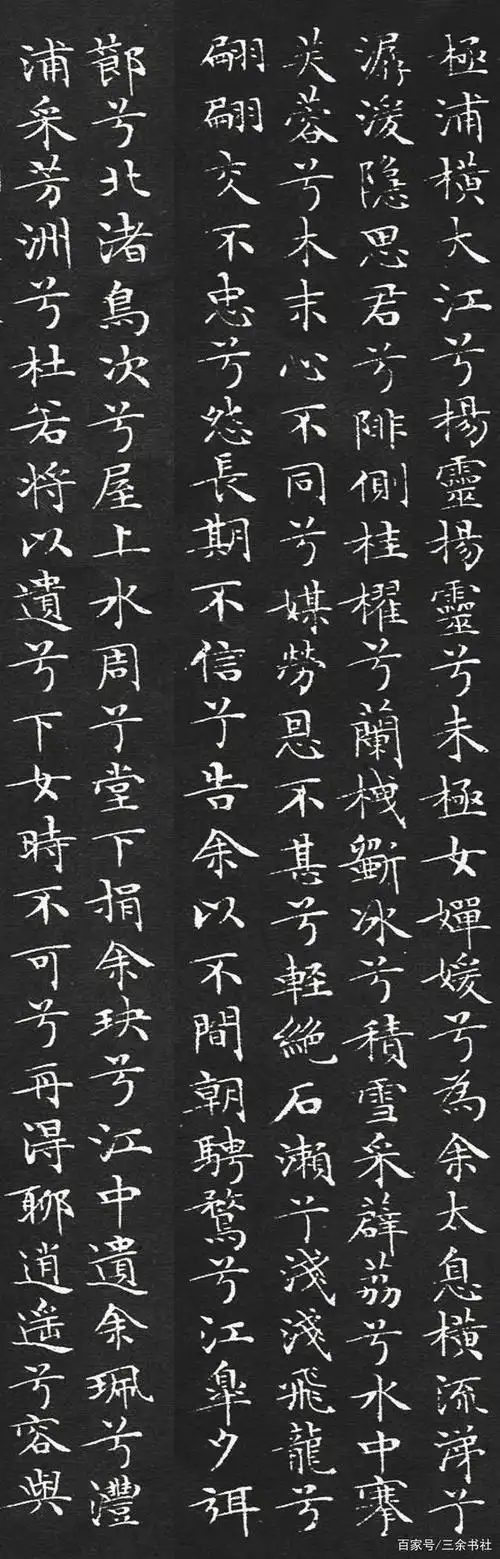 極浦橫大江兮楊靈揚靈兮未極女嬋媛兮為余太息橫流涕兮
潺湲隱思君兮陫側桂櫂兮蘭枻斲冰兮積雪采薜荔兮水中搴
芙蓉兮木末心不同兮媒勞恩不甚兮輕絕石瀨兮淺淺飛龍兮
翩翩交不忠兮怨長期不信兮告余以不間朝騁騖兮江皐夕弭
節兮北渚鳥次兮屋上水周兮堂下捐余玦兮江中遺余珮兮澧
浦采芳洲兮杜若將以遺兮下女時不可兮再得聊逍遙兮容與
百家号/三余书社